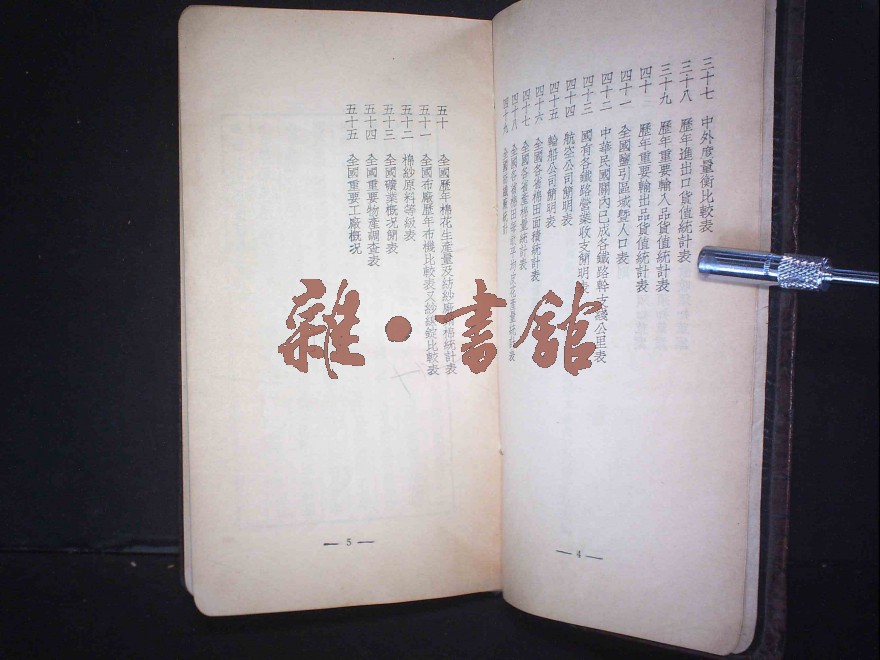 三十七 中外度量衡比較表
三十八 歷年進出口貨值統計表
三十九 歷年重要輸入品貨值統計表
四十 歷年重要輸出品貨值統計表
四十一 全國鹽引區域暨人口表
四十二 中華民國關內已成各鐵路幹支綫公里表
四十三 國有各鐵路營業收支簡明表
四十四 航空公司簡明表
四十五 輪船公司簡明表
四十六 全國各省棉田面積統計表
四十七 全國各省產棉量統計表
四十八 全國各省棉田每畝平均皮花產量統計表
四十九 全國紡織廠統計
— 4 —
五十 全國歷年棉花生產量及紡紗廠用棉統計表
五十一 全國布廠歷年布機比較表又紗線錠比較表
五十二 棉紗原料等級表
五十三 全國礦業概况簡表
五十四 全國重要物產調查表
五十五 全國重要工廠概况
— 5 —
雜·書館